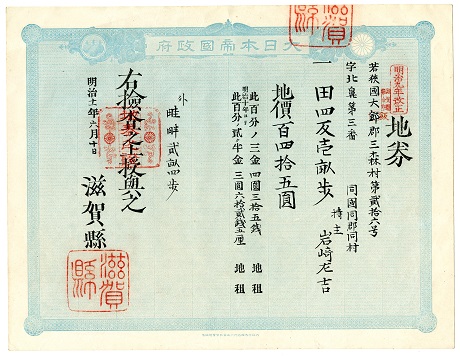 大日本帝國政府
明治九年改正
地券
若狭國大飯郡三森村第貳拾六号
字北裏第三番
同國同郡同村
持主 岩﨑左吉
一田四反壱畝歩
外 畦畔貳畝四歩
地價百四拾五圓
此百分ノ三金四圓三拾五銭 地租
明治十年ヨリ
此百分ノ貳ケ半金三圓六拾貳銭五厘 地租
右検査之上授與之
明治十一年六月十日
滋賀縣
滋賀縣